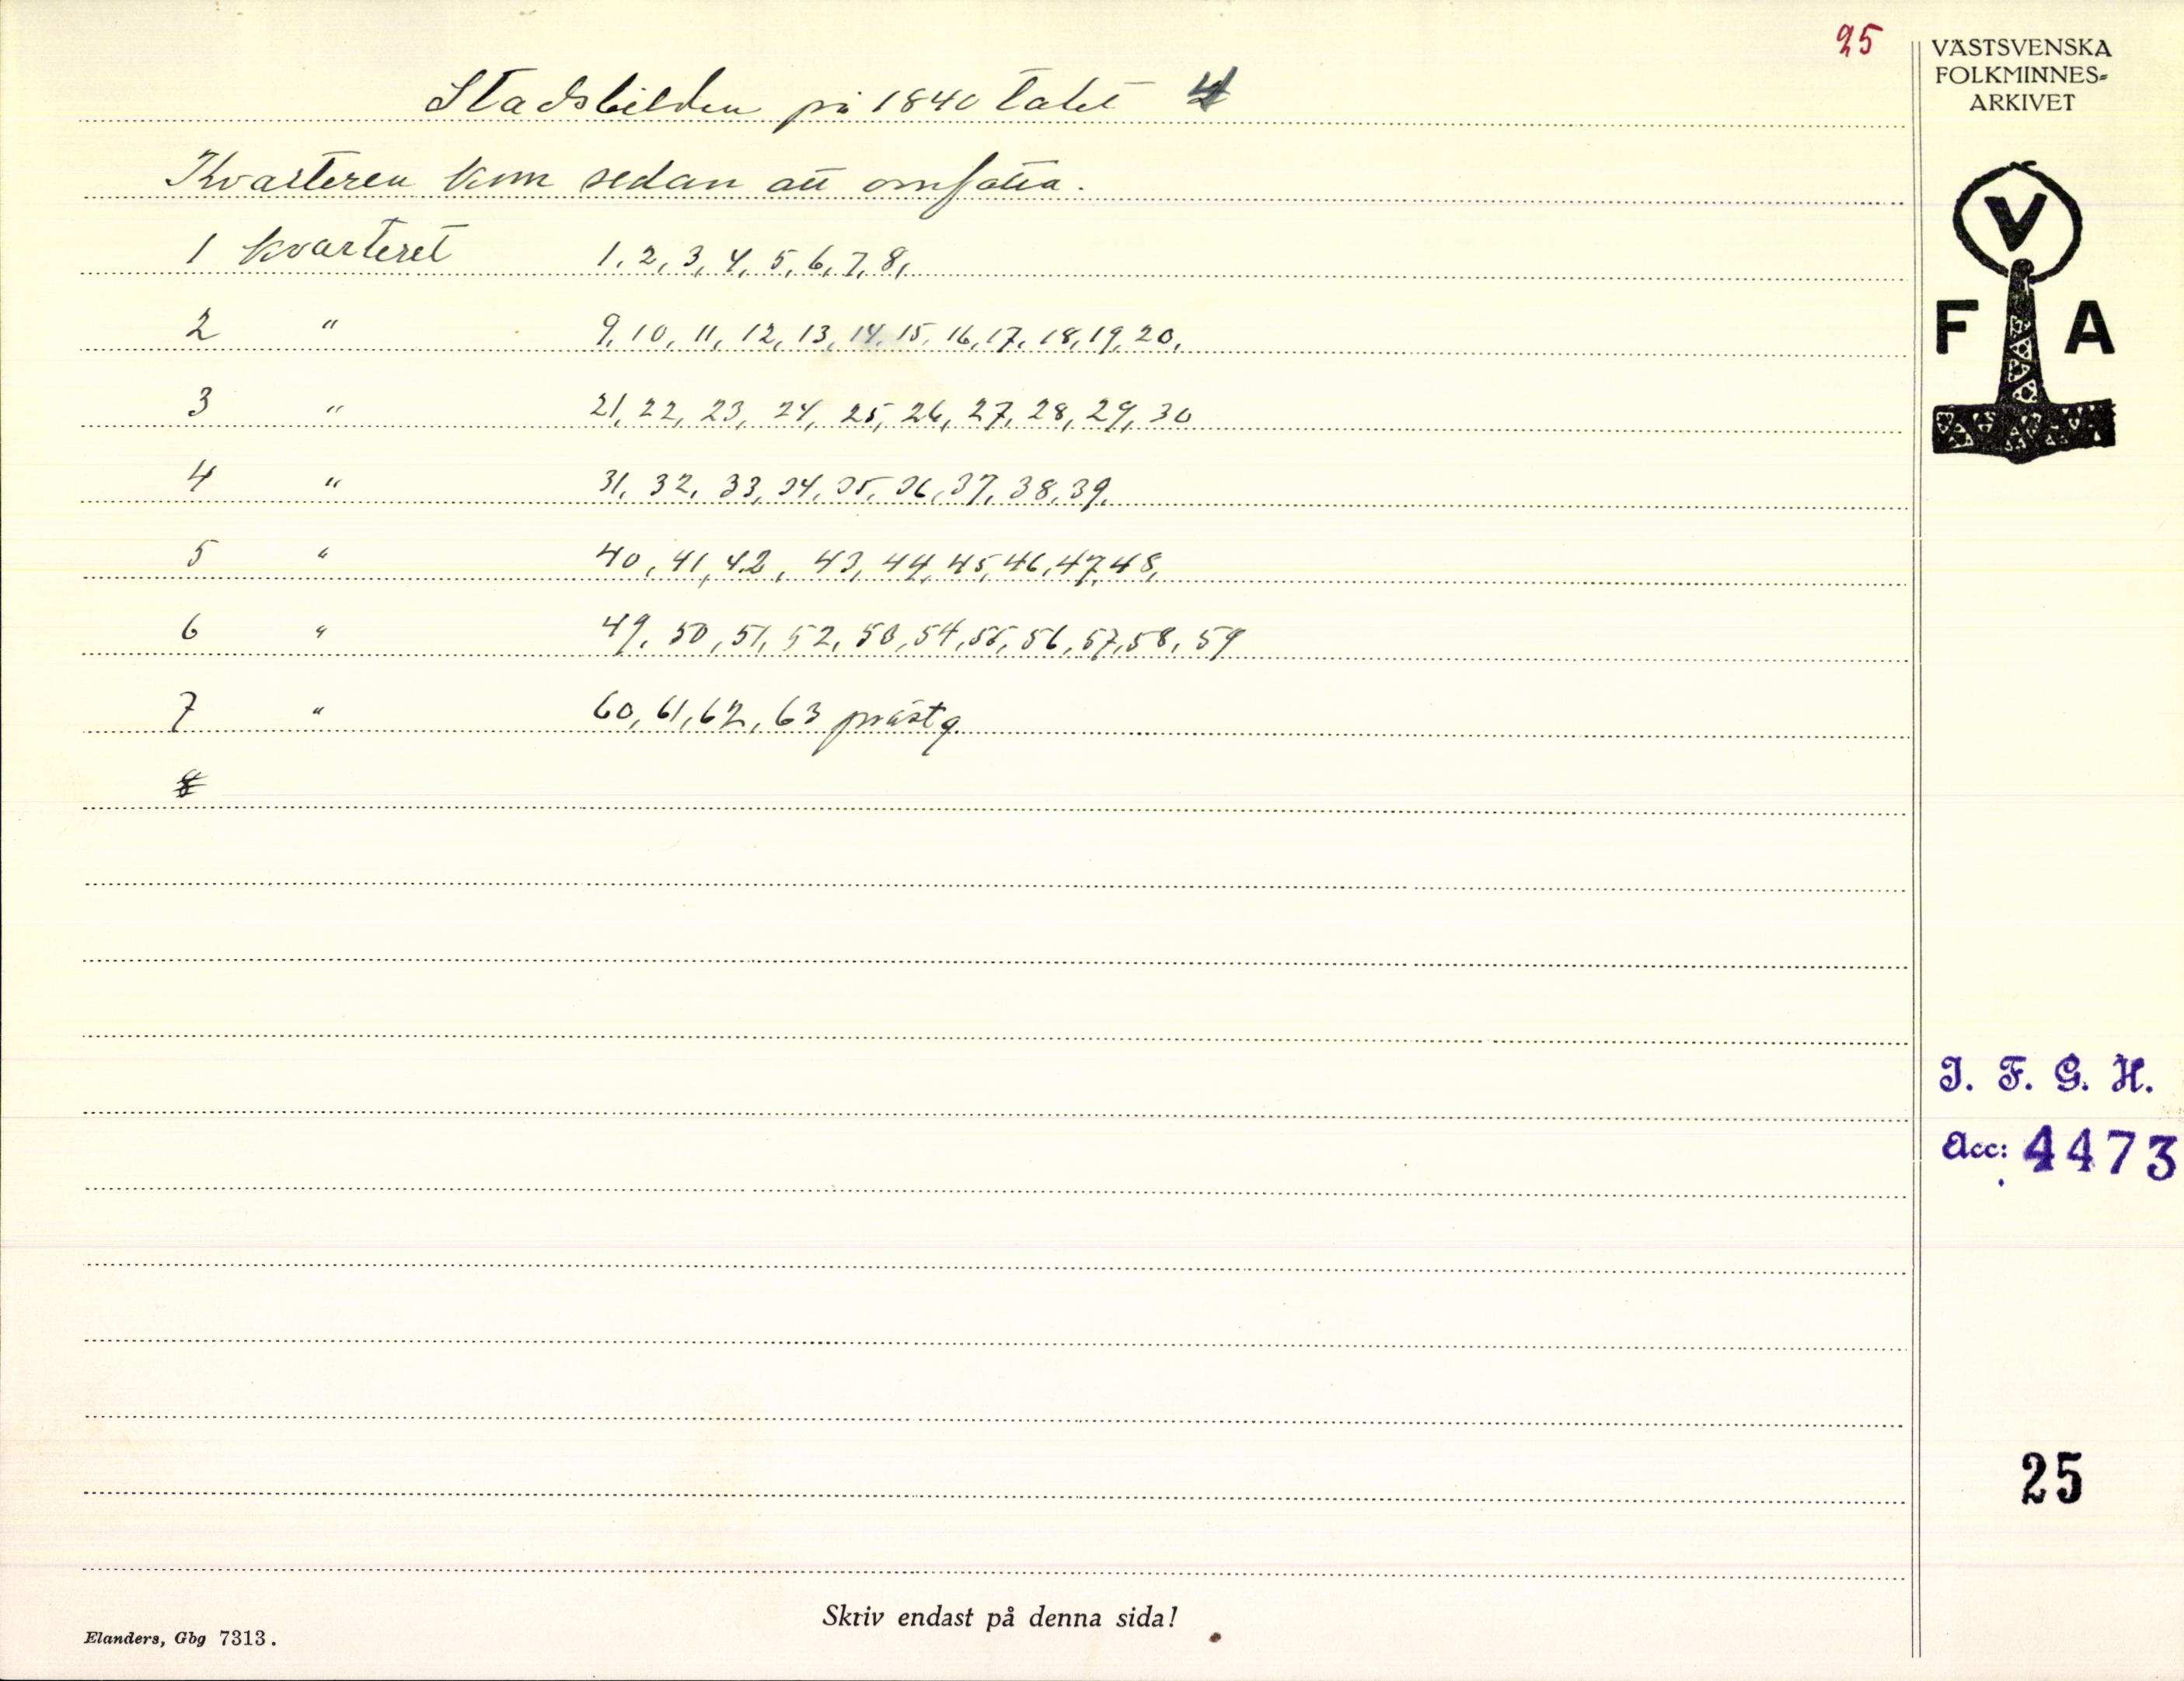 25
VÄSTSVENSKA
FOLKMINNES-
ARKIVET
V
F A
Stadsbilden på 1840 talet 4
Kvarteren kom sedan att omfatta.
1 kvarteret 1, 2, 3, 4, 5, 6, 7, 8,
2 " 9, 10, 11, 12, 13, 14, 15, 16, 17, 18, 19, 20,
3 " 21, 22, 23, 24, 25, 26, 27, 28, 29, 30
4 " 31, 32, 33, 34, 35, 36, 37, 38, 39,
5 " 40, 41, 42, 43, 44, 45, 46, 47, 48,
6 " 49, 50, 51, 52, 53, 54, 55, 56, 57, 58, 59
7 " 60, 61, 62, 63 prästg.
8
I. F. G. H.
Acc: 4473
25
Skriv endast på denna sida!
Elanders, Gbg 7313.